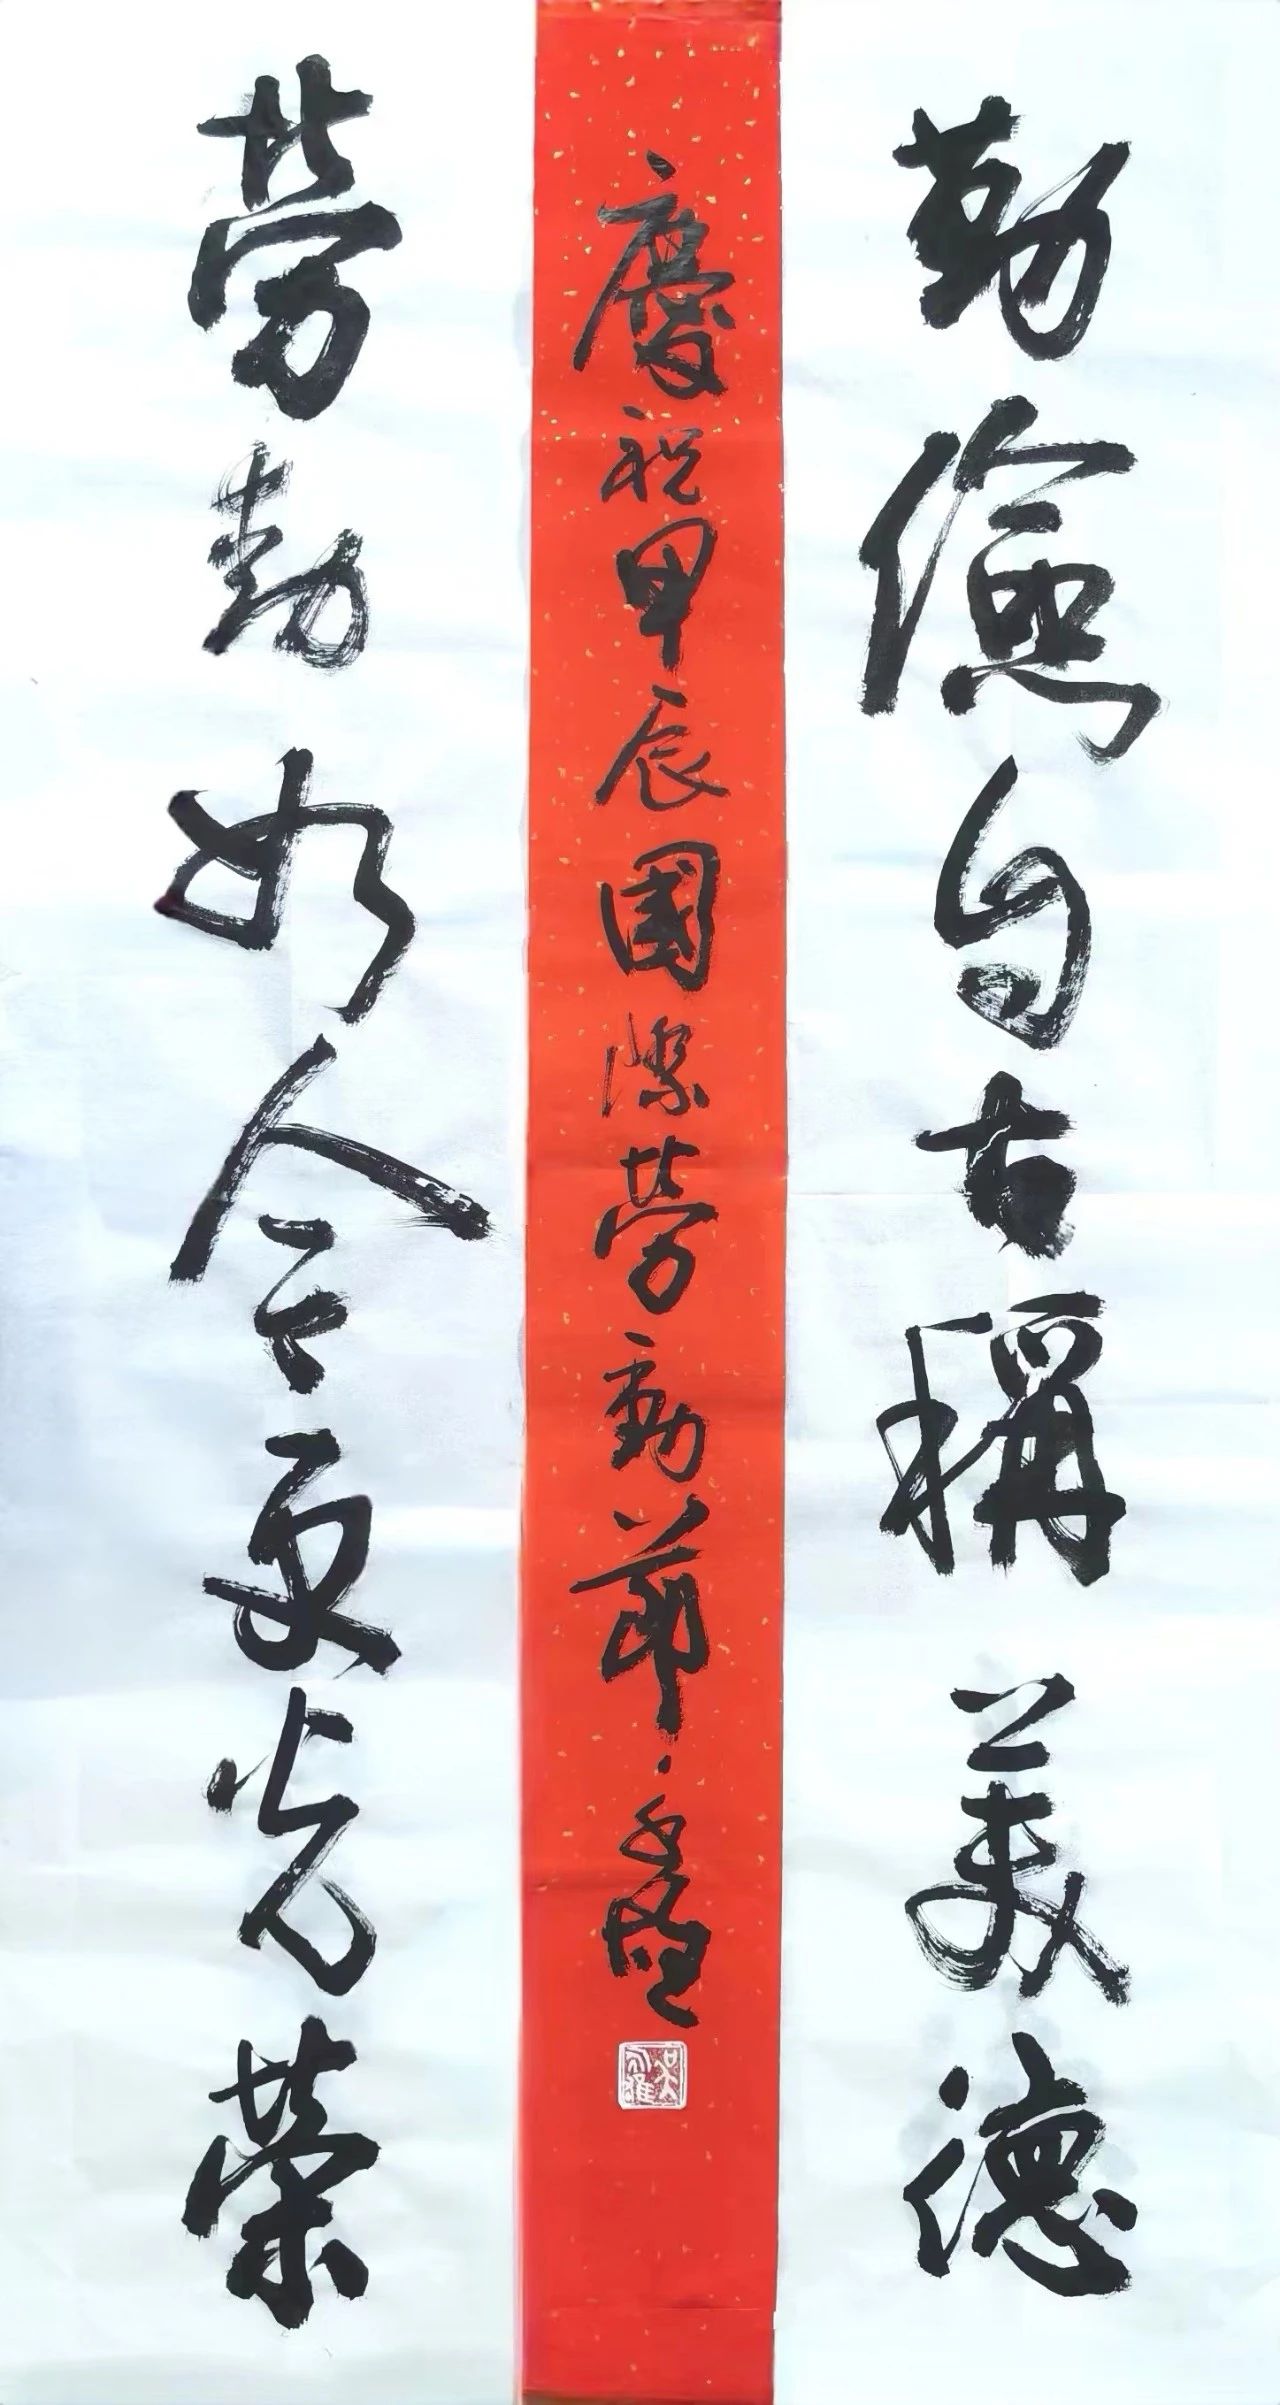 勤儉自古稱美德
慶祝甲辰國際勞動節
勞動如今更光榮